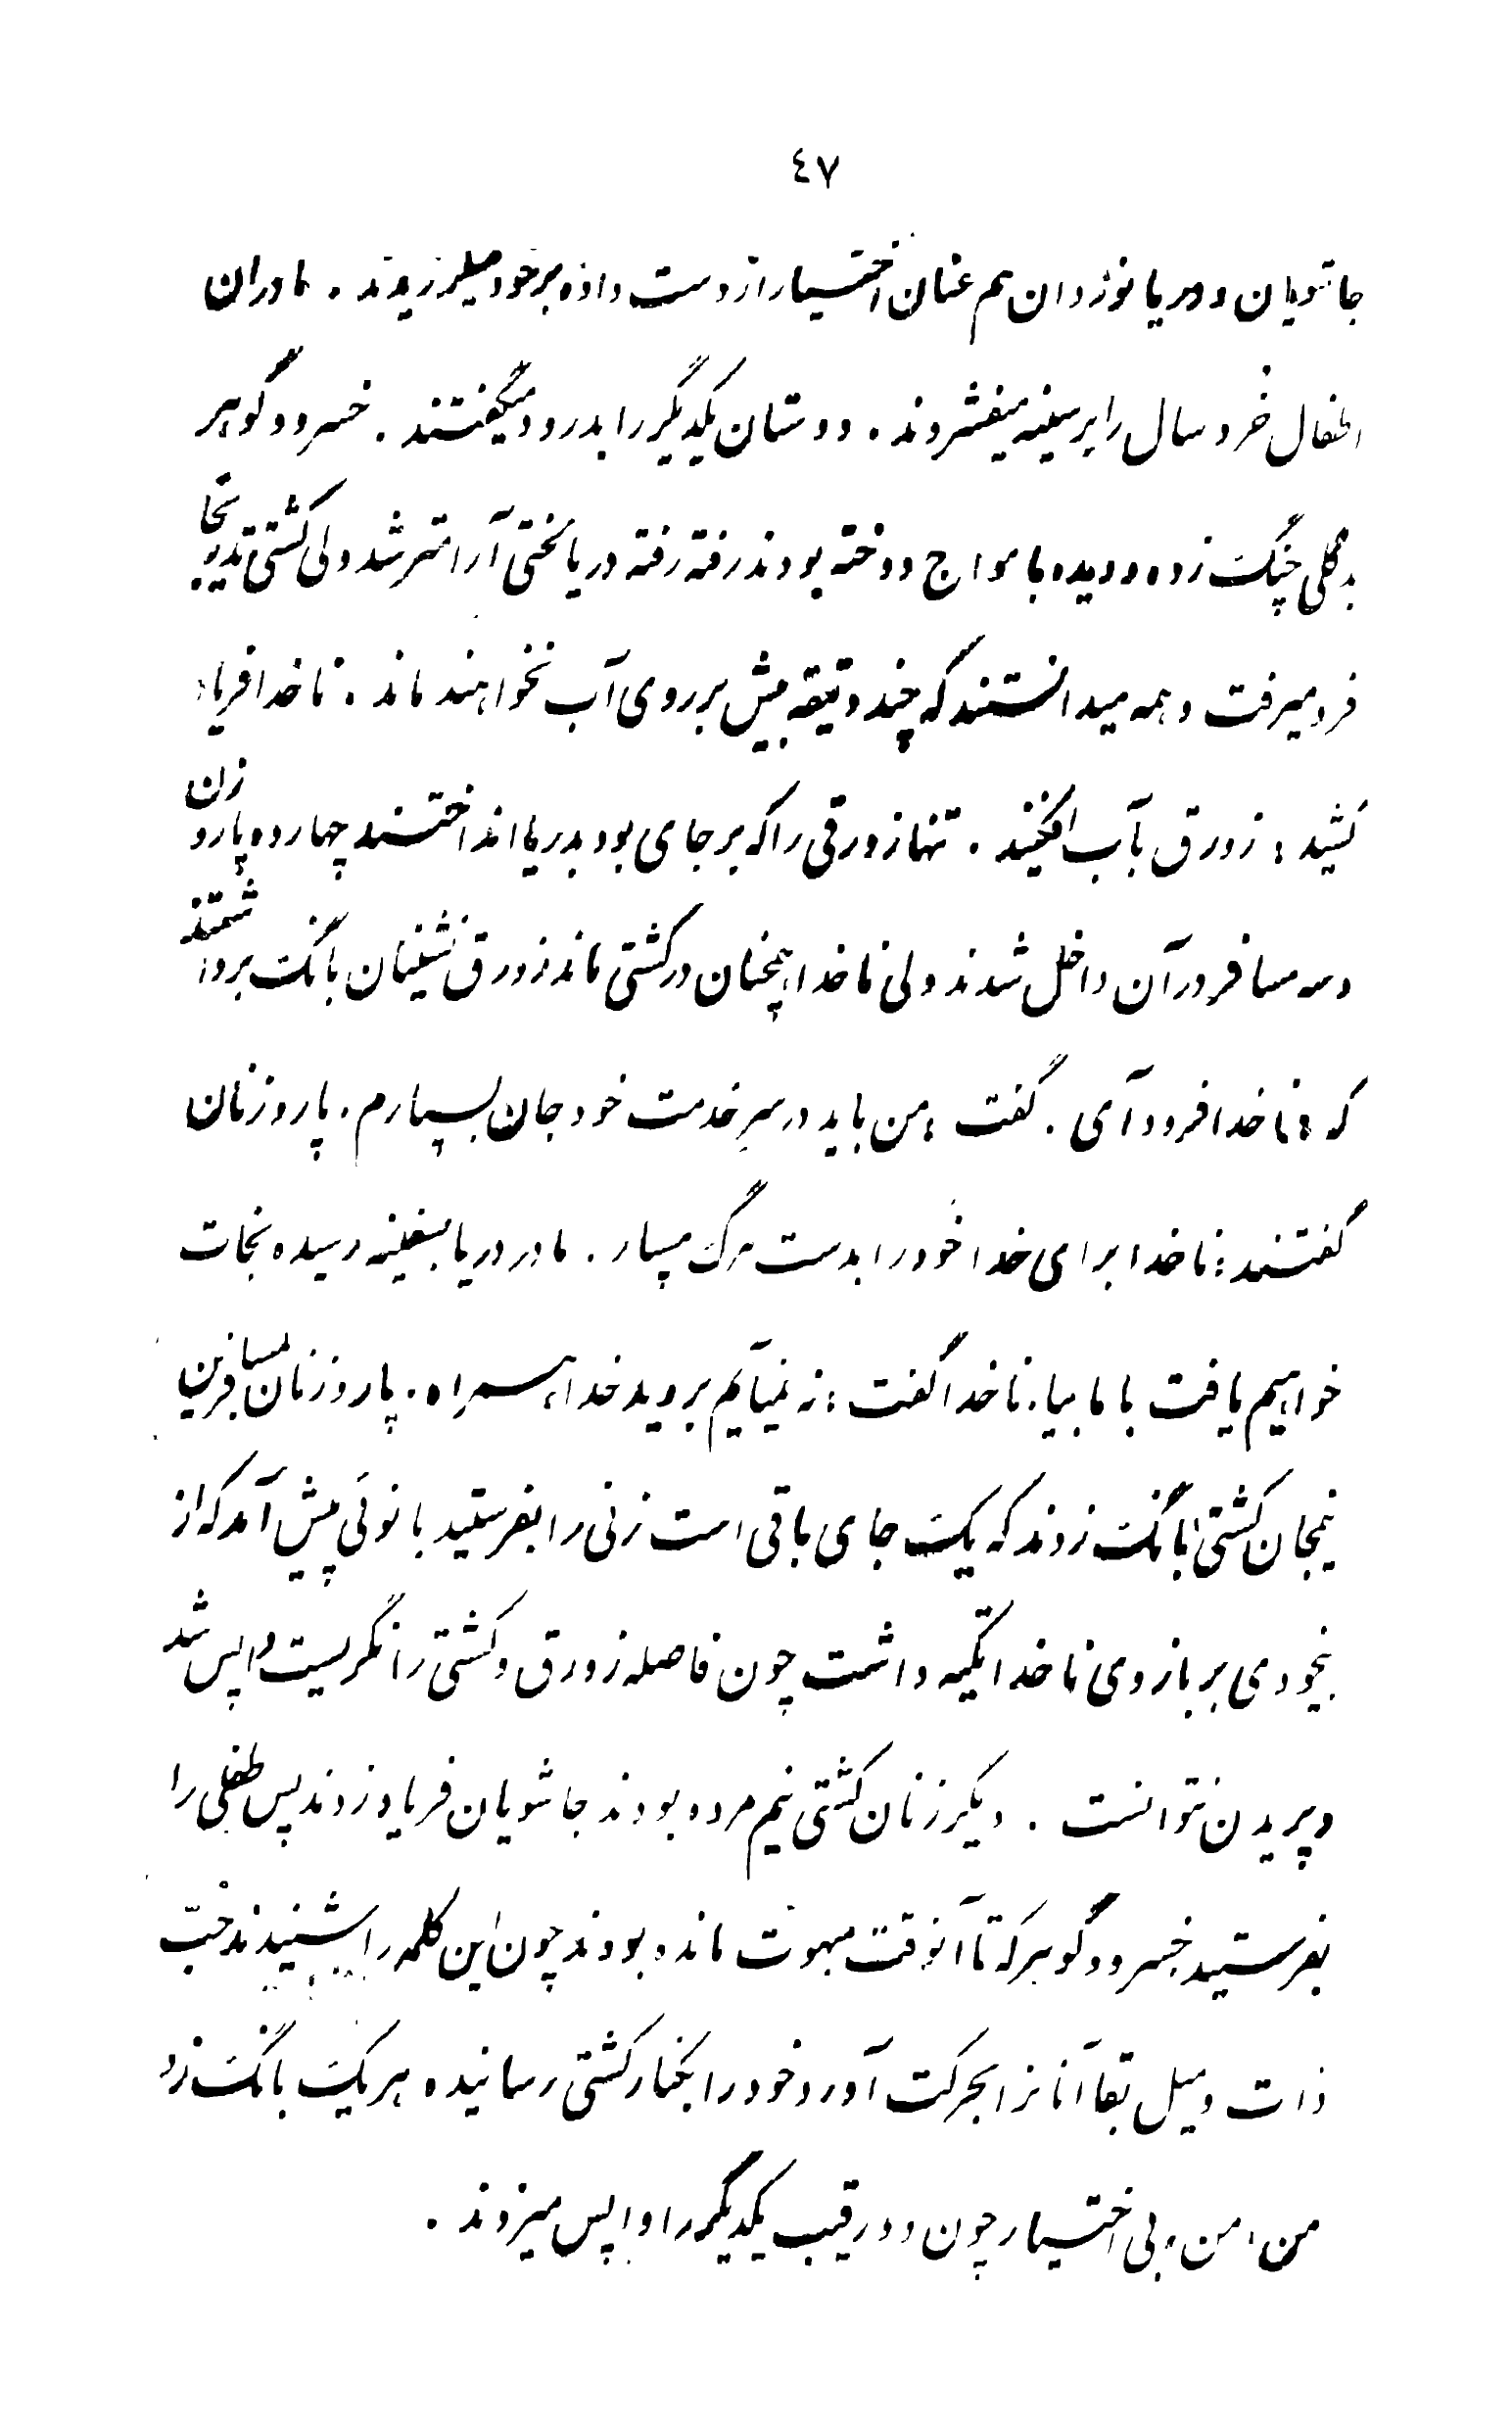 ٤٧
جاشویان و دریا نوردان هم عنان اختیار از دست داده بر خود میلرزیدند . مادران
اطفال خردسال را بر سینه میفشردند . دوستان یکدیگر را بدرود میگفتند . خسرو و گوهر
بدکلی چنگ زده و دیده بامواج دوخته بودند رفته رفته دریا لختی آرامتر شد ولی کشتی بتدریج
فرو میرفت و همه میدانستند که چند دقیقه بیش بر روی آب نخواهند ماند . ناخدا فریاد
کشید : زورق بآب افکنید . تنها زورقی را که بر جای بود بدریا انداختند چهارده پاروزن
و سه مسافر در آن داخل شدند ولی ناخدا همچنان در کشتی ماند زورق نشینان بانگ برداشتند
که : ناخدا فرود آی . گفت : من باید در سرِ خدمت خود جان بسپارم . پاروزنان
گفتند : ناخدا برای خدا خود را بدست مرگ مسپار . ما در دریا بسفینه رسیده نجات
خواهیم یافت با ما بیا . ناخدا گفت : نه نمیآیم بروید خدا همراه . پاروزنان بمسافرین
نیمجان کشتی بانگ زدند که یک جای باقی است زنی را بفرستید بانوئی پیش آمد که از
بیخودی بر بازوی ناخدا تکیه داشت چون فاصله زورق و کشتی را نگریست واپس شد
و پریدن نتوانست . دیگر زنان کشتی نیم مرده بودند جاشویان فریاد زدند پس طفلی را
بفرستید خسرو و گوهر که تا آنوقت مبهوت مانده بودند چون این کلمه را بشنیدند حُبّ
ذات و میل بقا آنانرا بحرکت آورد خود را بکنار کشتی رسانیده هر یک بانگ زد
من ، من ، بی اختیار چون دو رقیب یکدیگر را واپس میزدند .